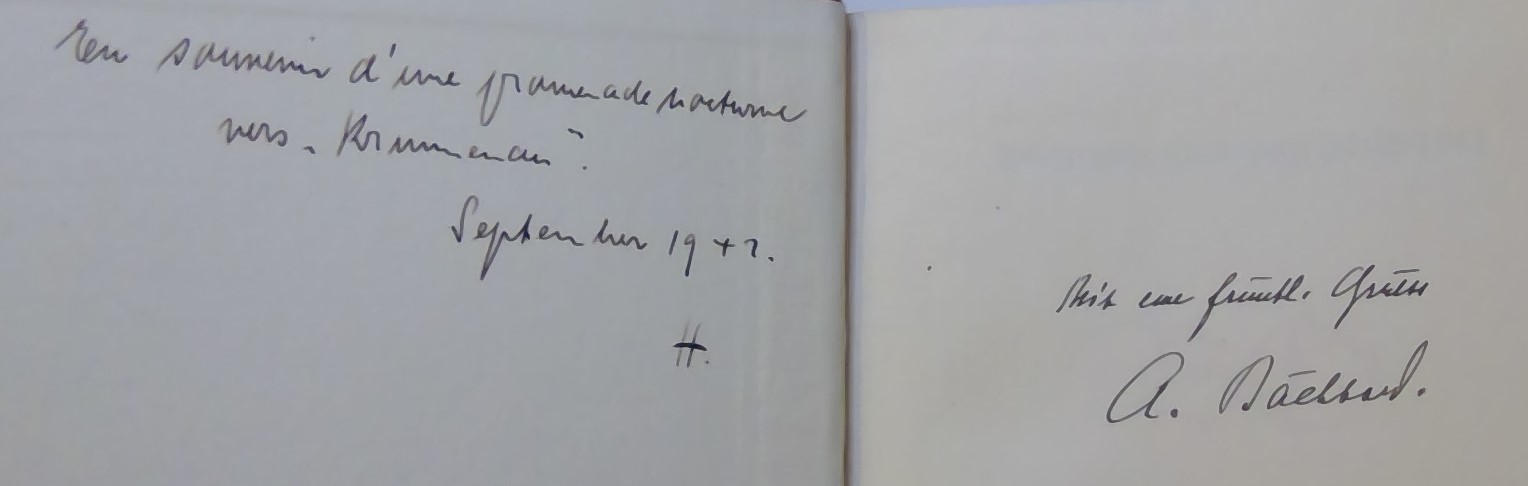 En souvenir d'une promenade nocturne
vers „Krummenau".
September 1942.
H.
Mit eme fründl. Gruess
A.